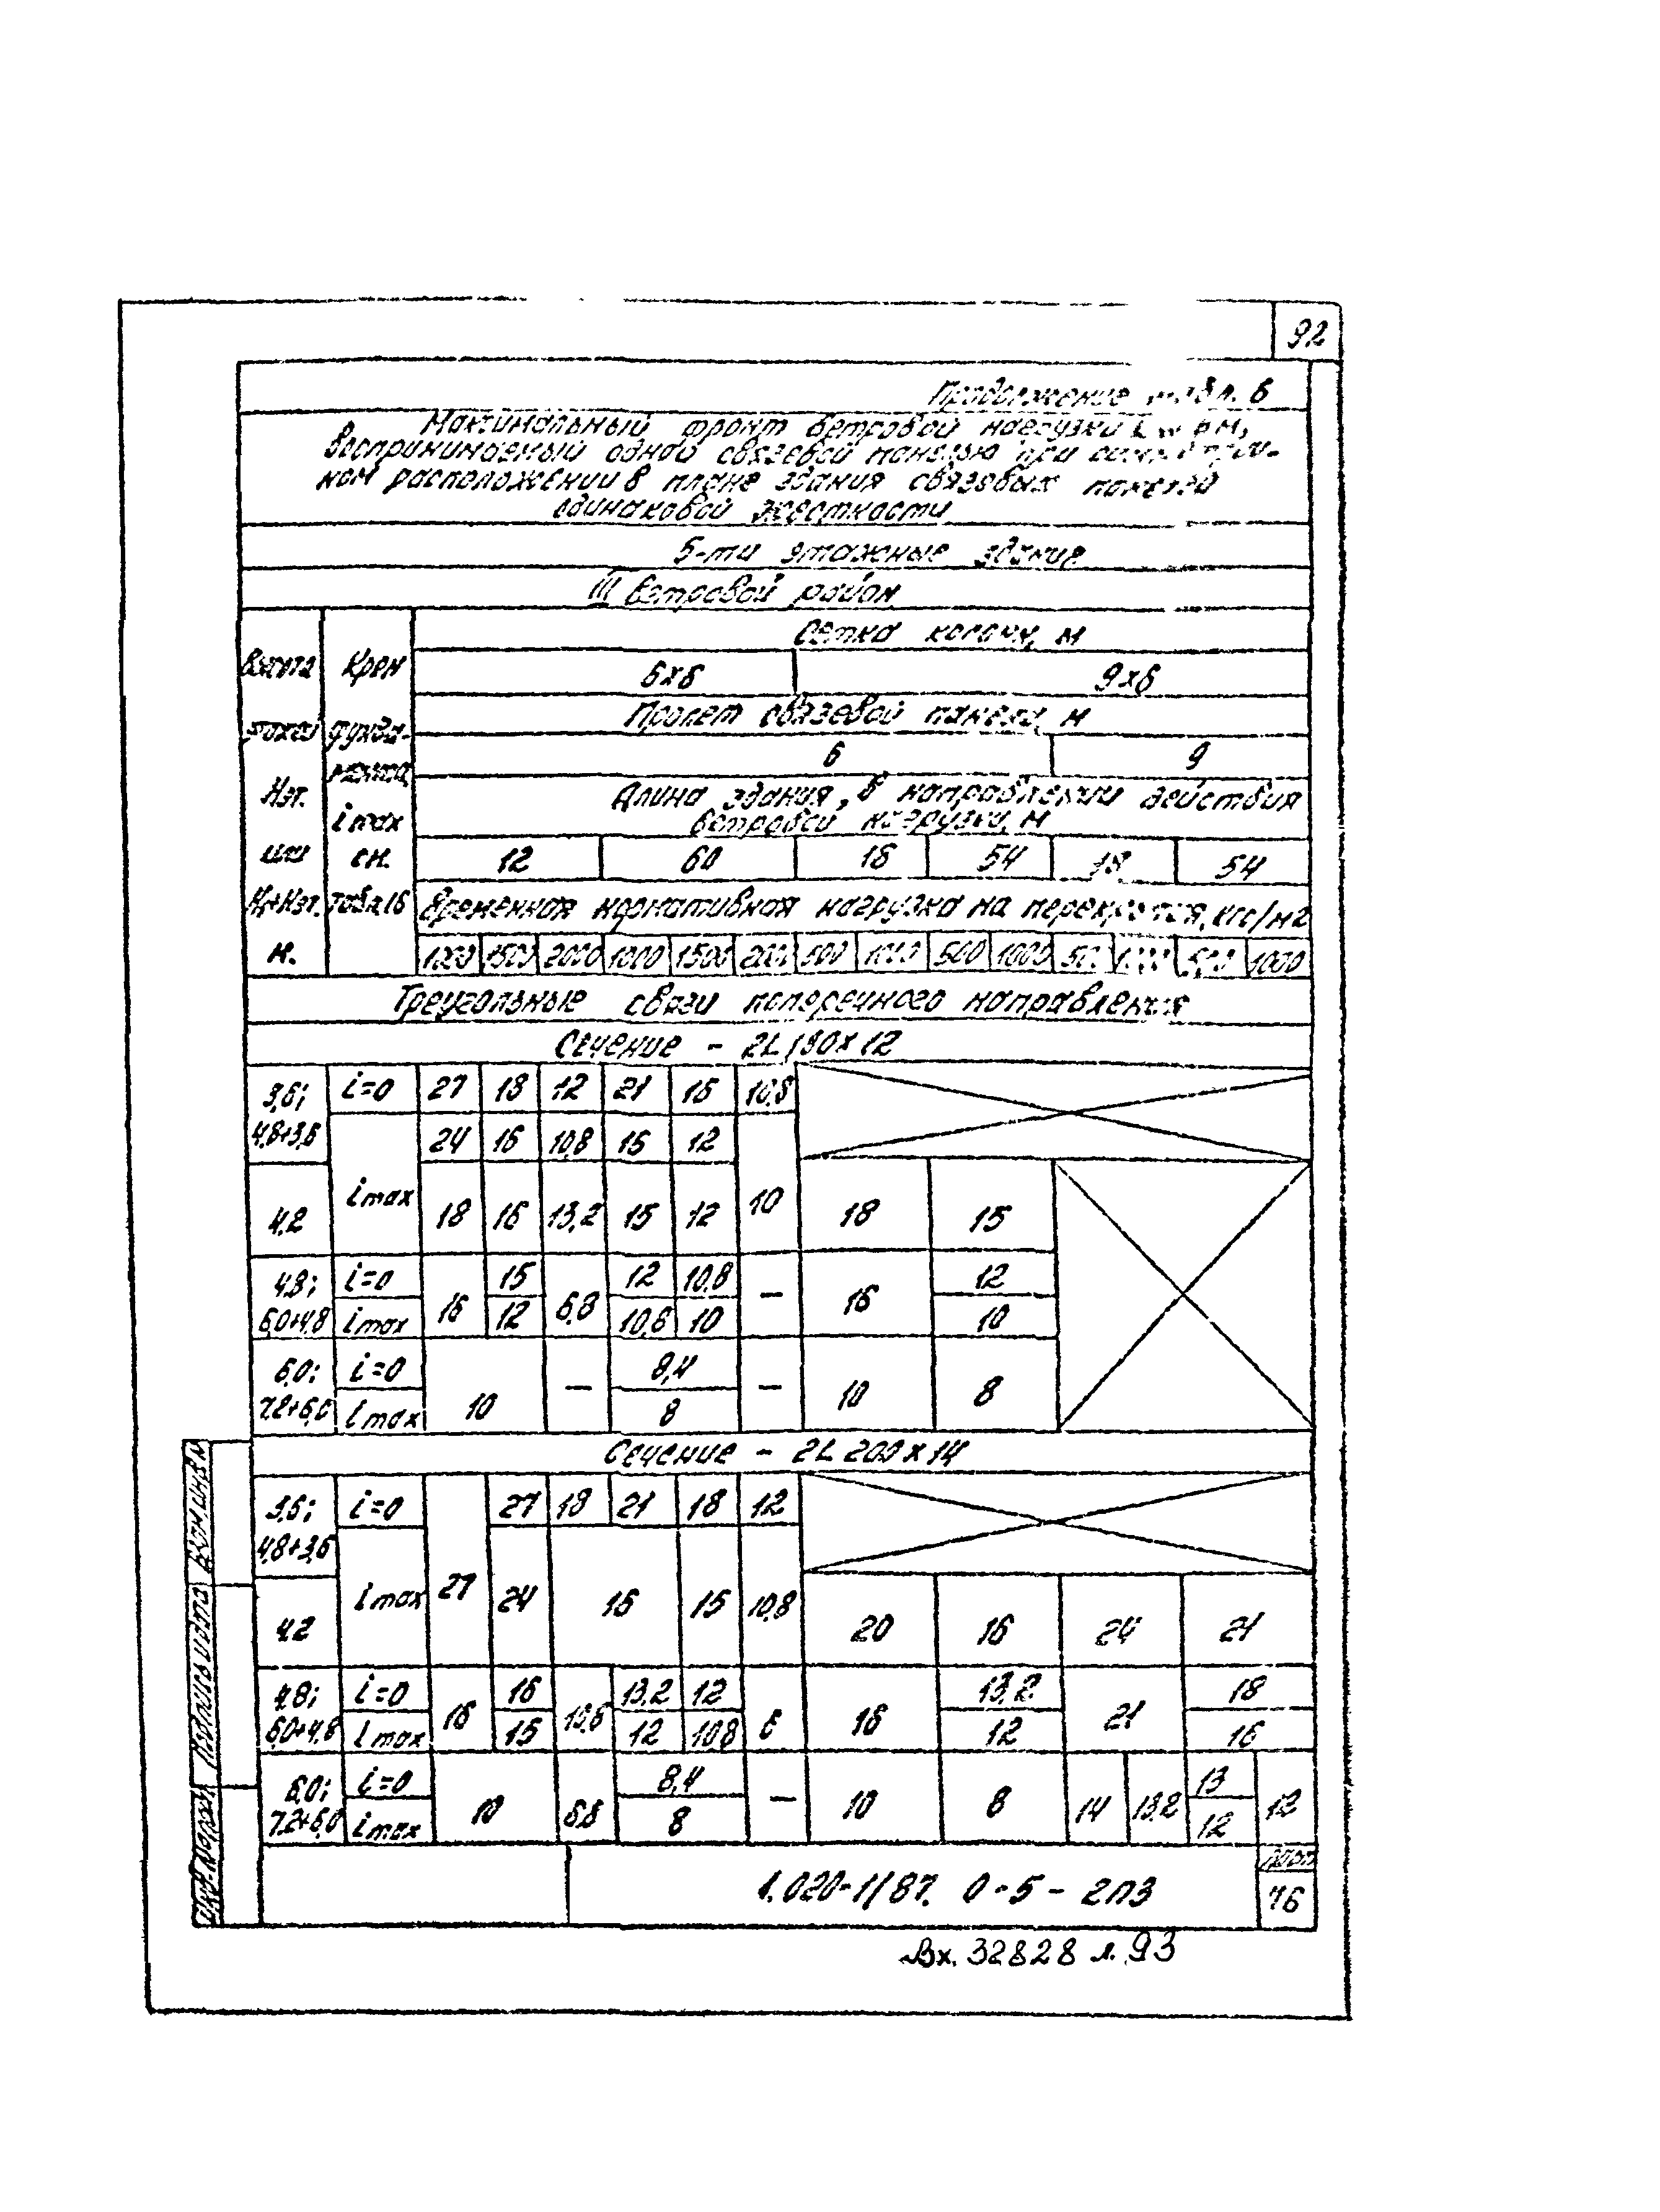 92
Продолжение табл. 6
Максимальный фронт ветровой нагрузки
воспринимаемый одной связевой панелью при
ном расположении в плане здания связевых панелей
одинаковой жесткости
5-ти этажные здания
III ветровой район
Высота Крен Сетка колонн, м
6х6 9х6
Пролет связевой панели, м
этажей фунда-
6 9
мента,
Нэт. Длина здания, в направлении действия
i max ветровой нагрузки, м
или см. 12 60 18 54 18 54
Н1+Нэт. табл.16 Временная нормативная нагрузка на перекрытия, кгс/м2
м. 1000 1500 2000 1000 1500 2000 500 1000 500 1000 500 1000 500 1000
Треугольные связи поперечного направления
Сечение - 2L 180х12
3,6; i=0 27 18 12 21 16 10,8
4,8+3,6 24 16 10,8 15 12
4,2 i max 18 16 13,2 15 12 10 18 15
4,8; i=0 15 12 10,8 12
16 6,8 — 16
6,0+4,8 i max 12 10,8 10 10
6,0; i=0 8,4
10 — — 10 8
7,2+6,0 i max 8
Сечение - 2L 200х14
3,6; i=0 27 18 21 18 12
4,8+3,6
i max 27 24 16 15 10,8
4,2 20 16 24 21
4,8; i=0 16 13,2 12 13,2 18
16 16 21
6,0+4,8 i max 15 12 10,8 12 16
6,0; i=0 8,4 13
10 6,8 — 10 8 14 13,2 12
7,2+6,0 i max 8 12
1.020-1/87. 0-5-2ПЗ
Лист
76
Вх. 32828 л. 93
Инв.№подл. Подпись и дата Взам.инв.№